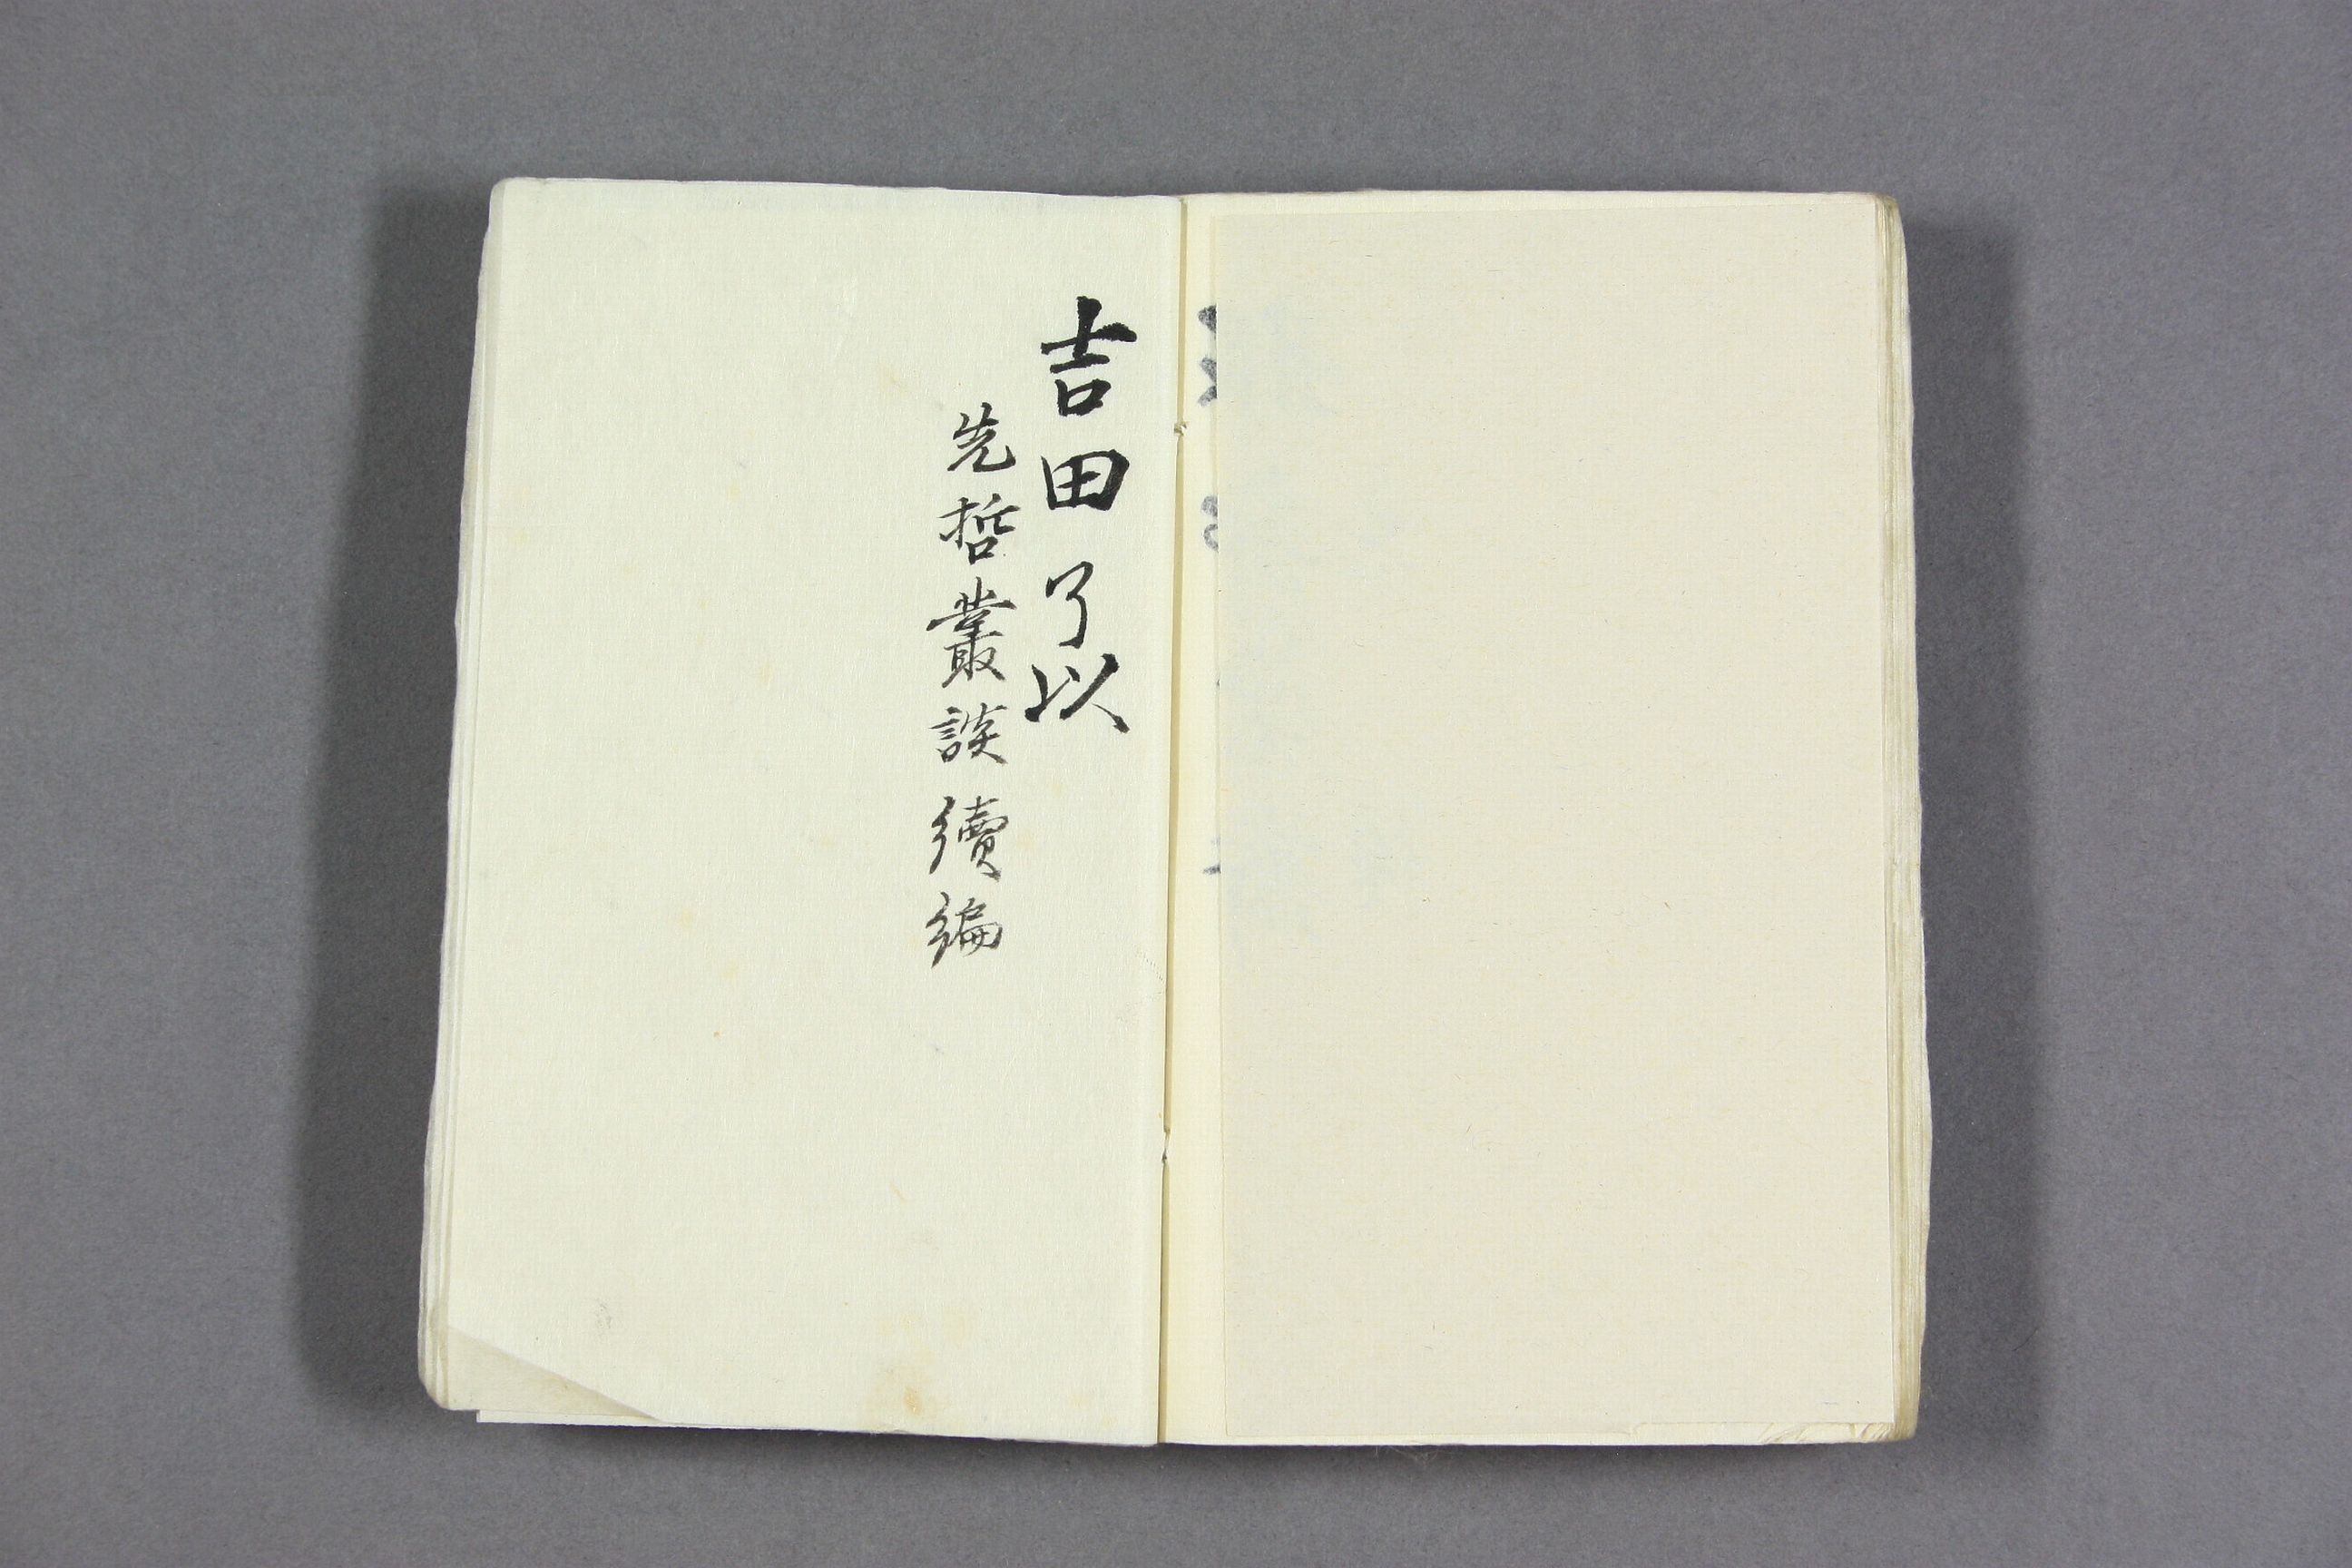 吉田了以
先哲叢談續編